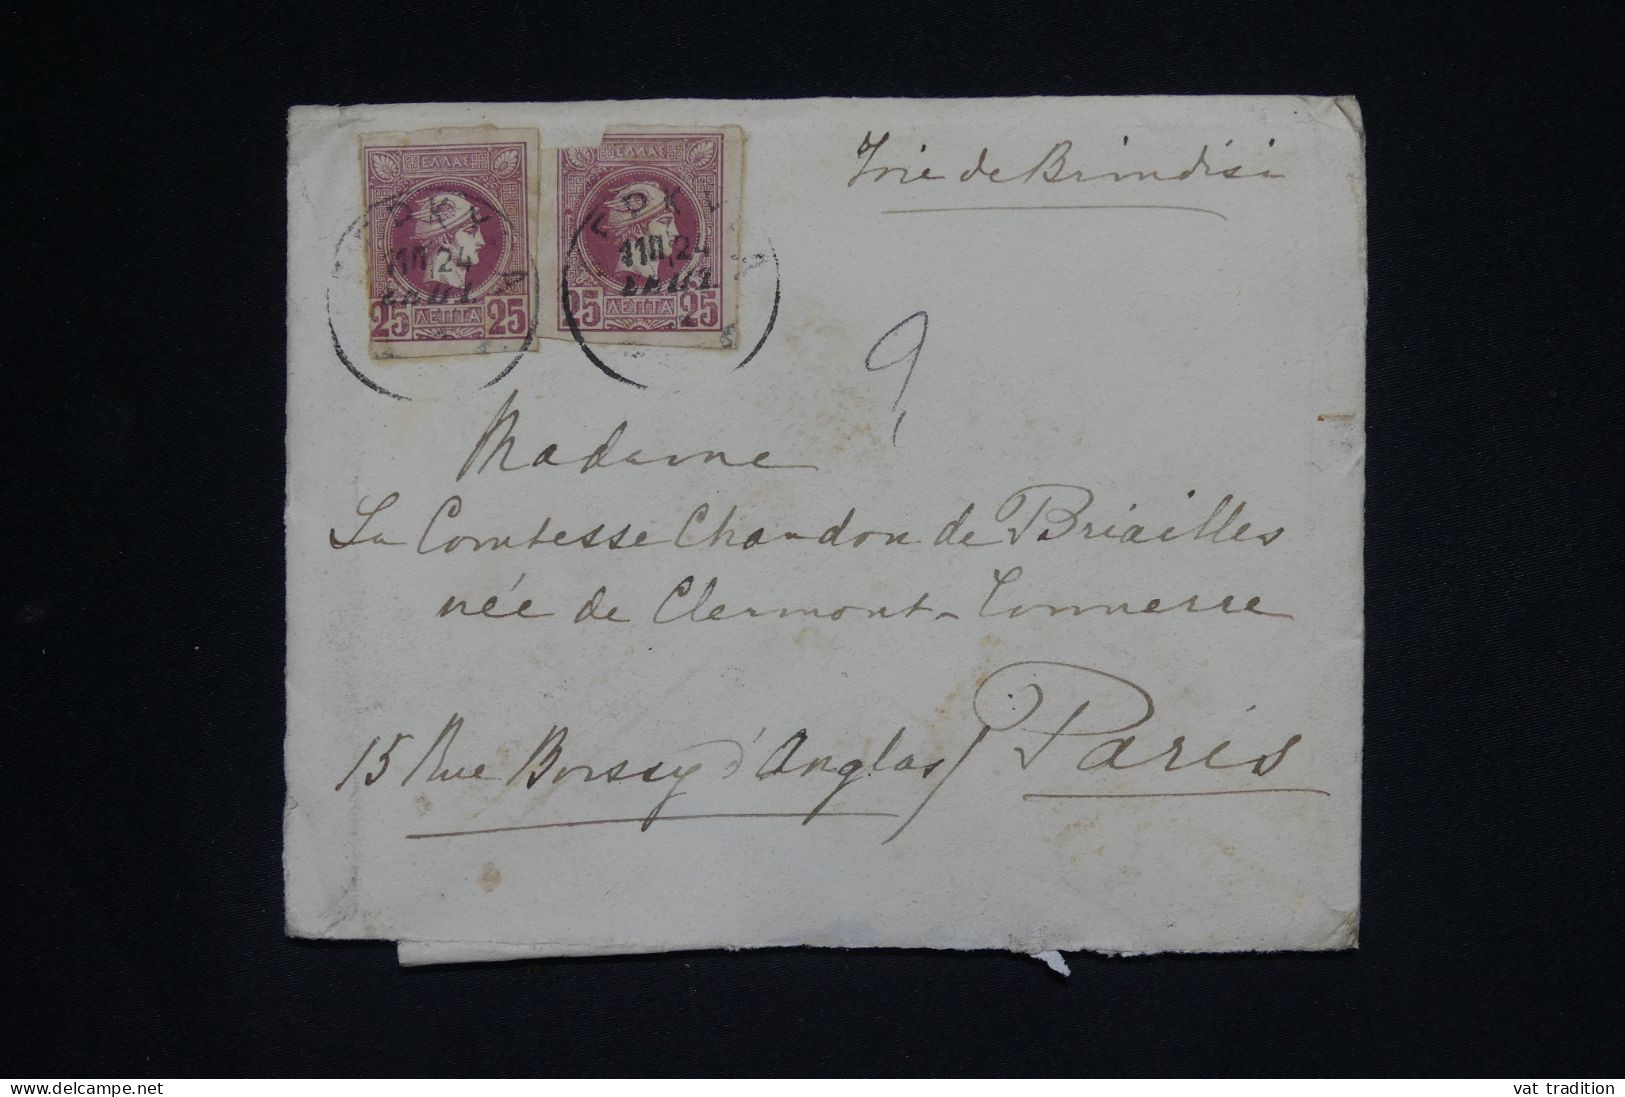 Voie de Brindisi
ΕΛΛΑΣ ΕΛΛΑΣ
11Π,24 11Π,24
25 ΛΕΠΤΑ 25 25 ΛΕΠΤΑ 25
Madame
La Comtesse Chandon de Briailles
née de Clermont-Tonnerre
15 Rue Boissy d'Anglas / Paris
delcampe.net
vat tradition